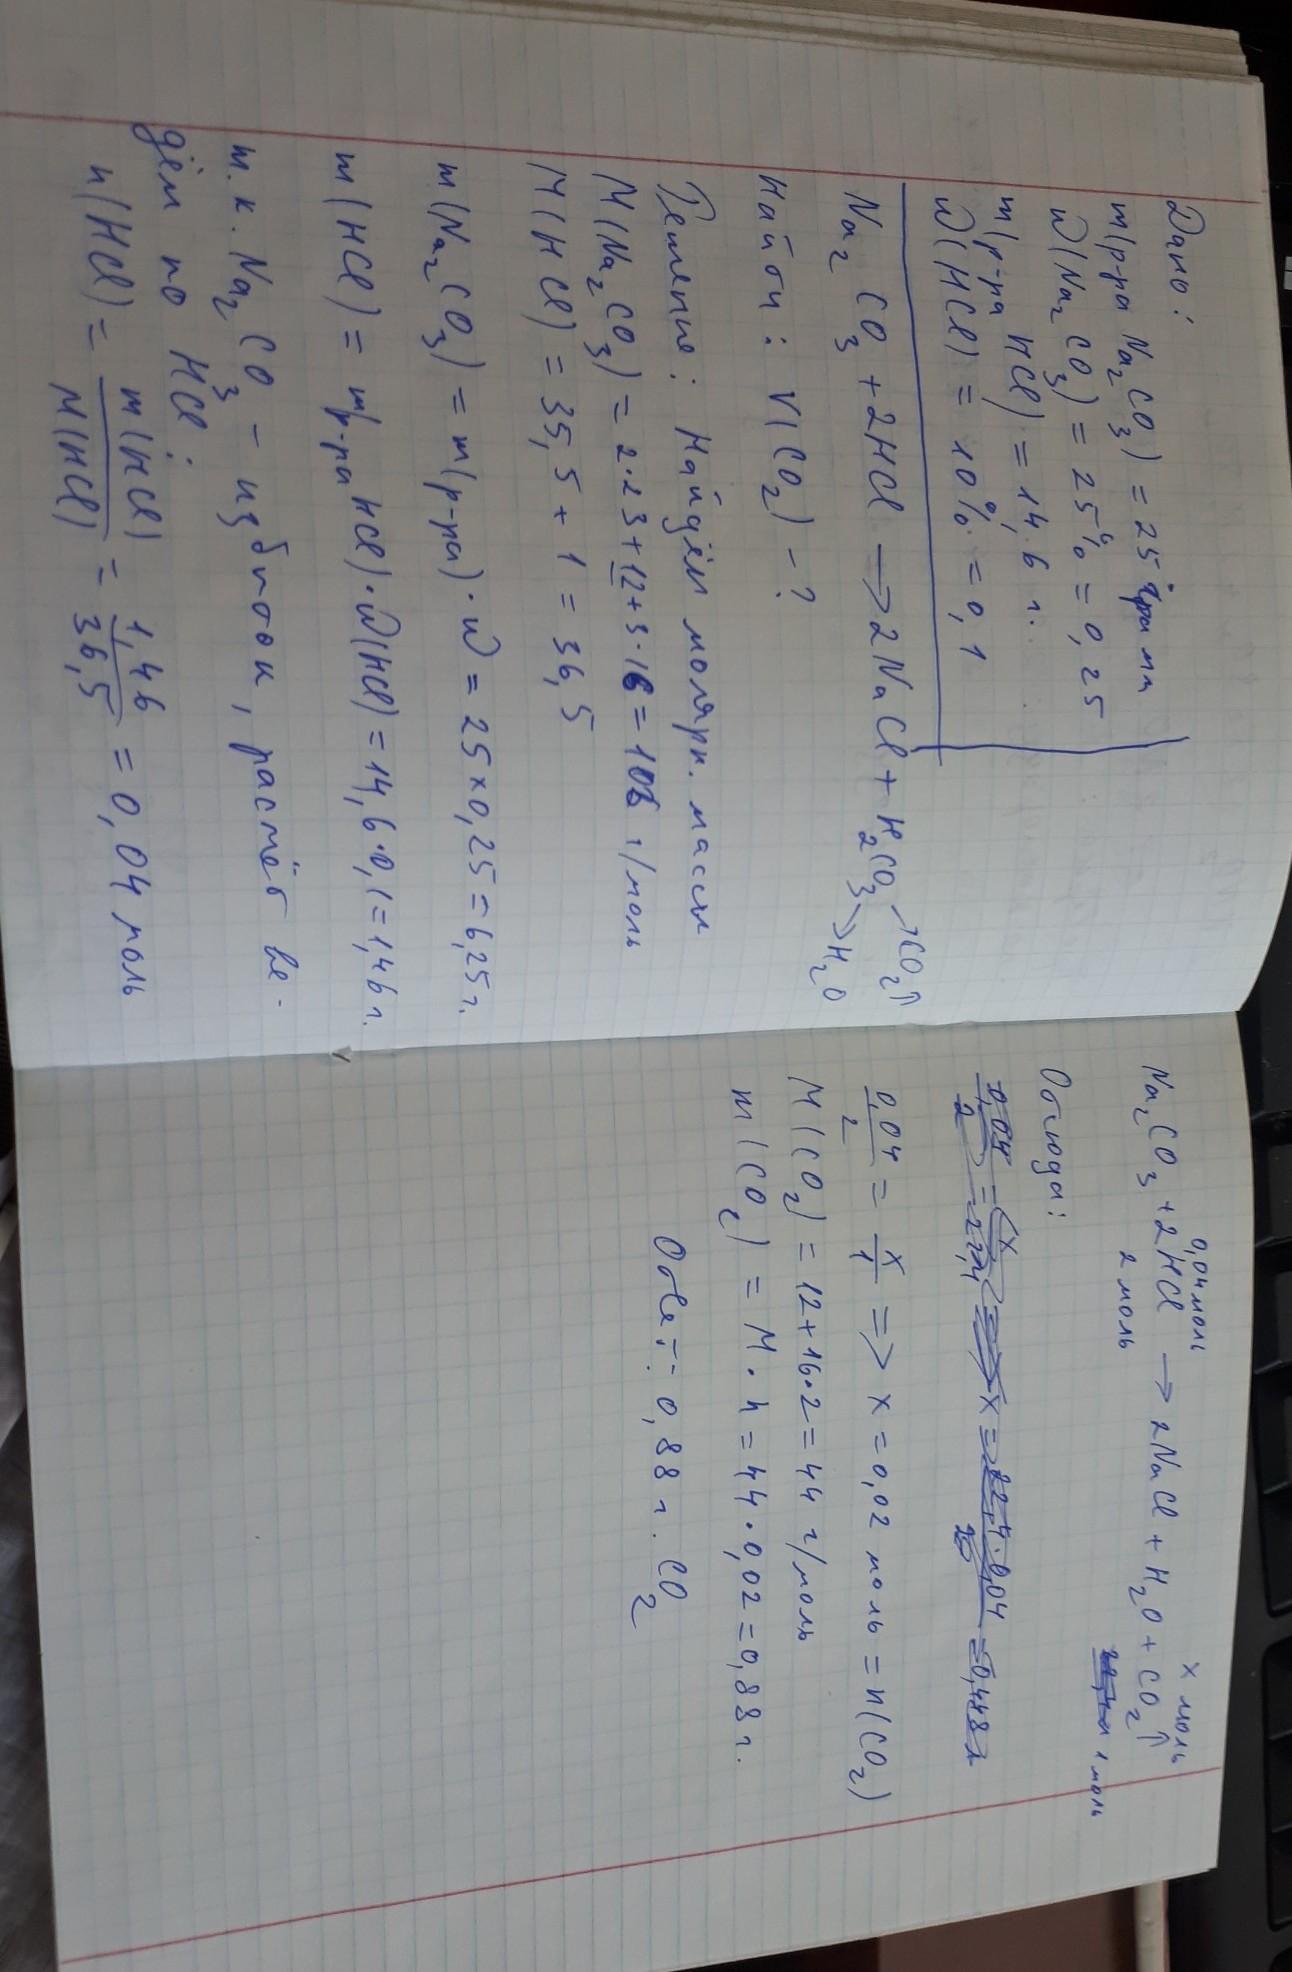 Дано:
m(р-ра Na2CO3) = 25 грамм
W(Na2CO3) = 25% = 0,25
m(р-ра HCl) = 14,6 г.
W(HCl) = 10% = 0,1
Na2CO3 + 2HCl → 2NaCl + H2CO3 → CO2↑ → H2O
Найти: V(CO2) - ?
Решение: Найдём молярн. массы
M(Na2CO3) = 2·23+12+3·16 = 106 г/моль
M(HCl) = 35,5 + 1 = 36,5
m(Na2CO3) = m(р-ра)·W = 25×0,25 = 6,25 г.
m(HCl) = m(р-ра HCl)·W(HCl) = 14,6·0,1 = 1,46 г.
т.к. Na2CO3 - избыток, расчёт ве-
дём по HCl:
n(HCl) = m(HCl)/M(HCl) = 1,46/36,5 = 0,04 моль
0,04 моль x моль
Na2CO3 + 2HCl → 2NaCl + H2O + CO2↑
2 моль 1 моль
Отсюда:
0,04/2 = x/22,4 => x = 22,4·0,04/2 = 0,448 л
0,04/2 = x/1 => x = 0,02 моль = n(CO2)
M(CO2) = 12+16·2 = 44 г/моль
m(CO2) = M·n = 44·0,02 = 0,88 г.
Ответ: 0,88 г. CO2